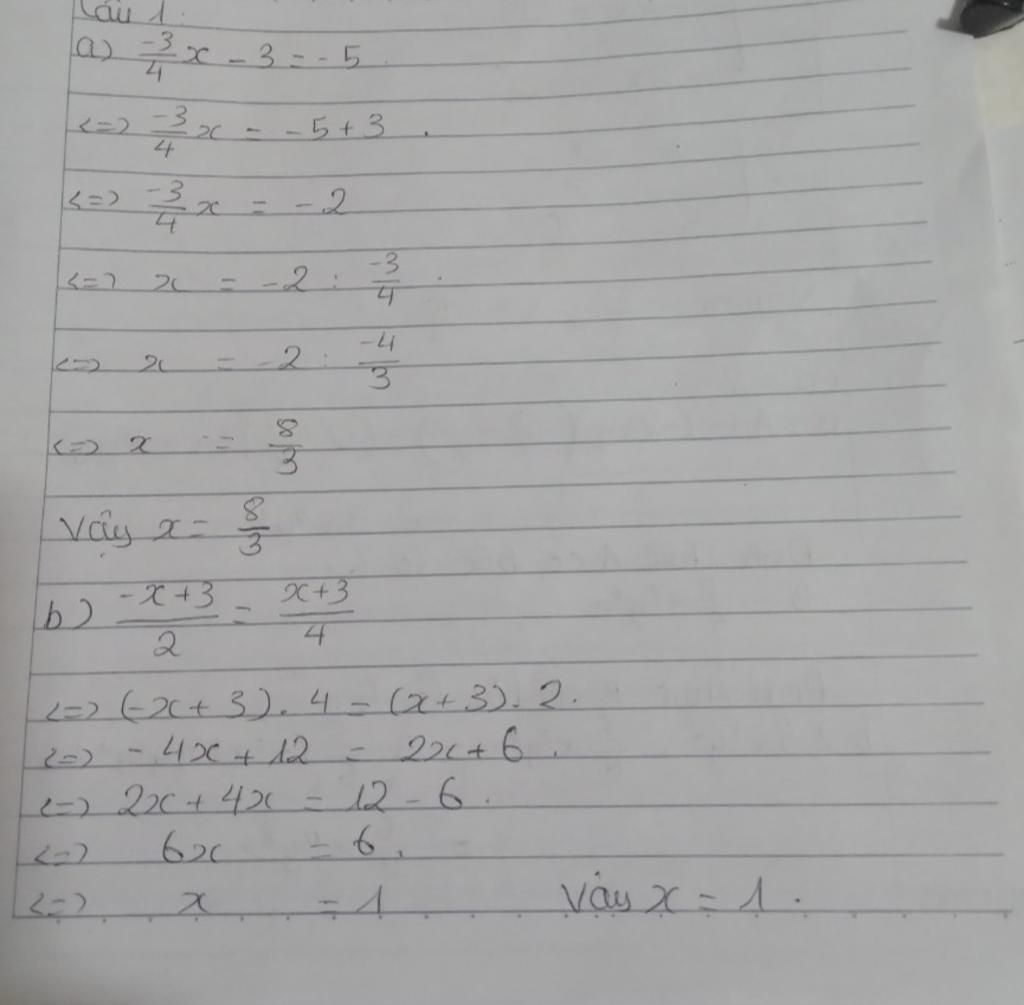 Câu 1.
a) -3/4 x - 3 = -5
<=> -3/4 x = -5 + 3.
<=> -3/4 x = -2
<=> x = -2 : -3/4.
<=> x = -2 : -4/3
<=> x = 8/3
Vậy x = 8/3
b) -x+3/2 = x+3/4
<=> (-x+3). 4 = (x+3). 2.
<=> -4x + 12 = 2x + 6.
<=> 2x + 4x = 12 - 6.
<=> 6x = 6.
<=> x = 1 Vậy x = 1.